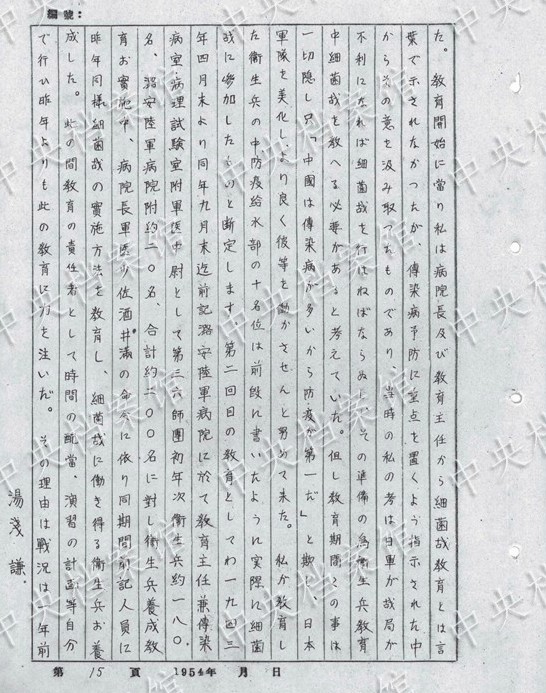 編號：
た。教育開始に當り私は病院長及び教育主任から細菌战教育とは言
葉で示されなかつたが、傳染病予防に重点を置くよう指示された中
からその意を汲み取つたものであり、当時の私の考は日軍が战局が
不利になれば細菌战を行はねばならぬし、その準備の為衛生兵教育
中細菌战を教へる必要があると考えていた。但し教育期間この事は
一切隠し只「中國は傳染病が多いから防疫が第一だ」と欺、日本
軍隊を美化し、より良く彼等を働かさせんと努めて来た。 私が教育し
た衛生兵の中、防疫給水部の十名位は前段に書いたように実際に細菌
战に参加したものと断定します。第二回目の教育としてわ一九四三
年四月末より同年九月末迄前記潞安陸軍病院に於て教育主任兼傳染
病室、病理試驗室附軍医中尉として第三六師團初年次衛生兵約一八〇
名、潞安陸軍病院附約二〇名、合計約二〇〇名に對し衛生兵養成教
育お実施中、病院長軍医少佐酒井満の命令に依り同期間前記人員に
昨年同様細菌战の實施方法を教育し、細菌战に働き得る衛生兵お養
成した。此の間教育の責任者として時間の配當、演習の計画等自分
で行ひ昨年よりも此の教育に力を注いだ。 その理由は戰況は一年前
湯淺謙.
第 15 頁 1954年 月 日
中央档案馆